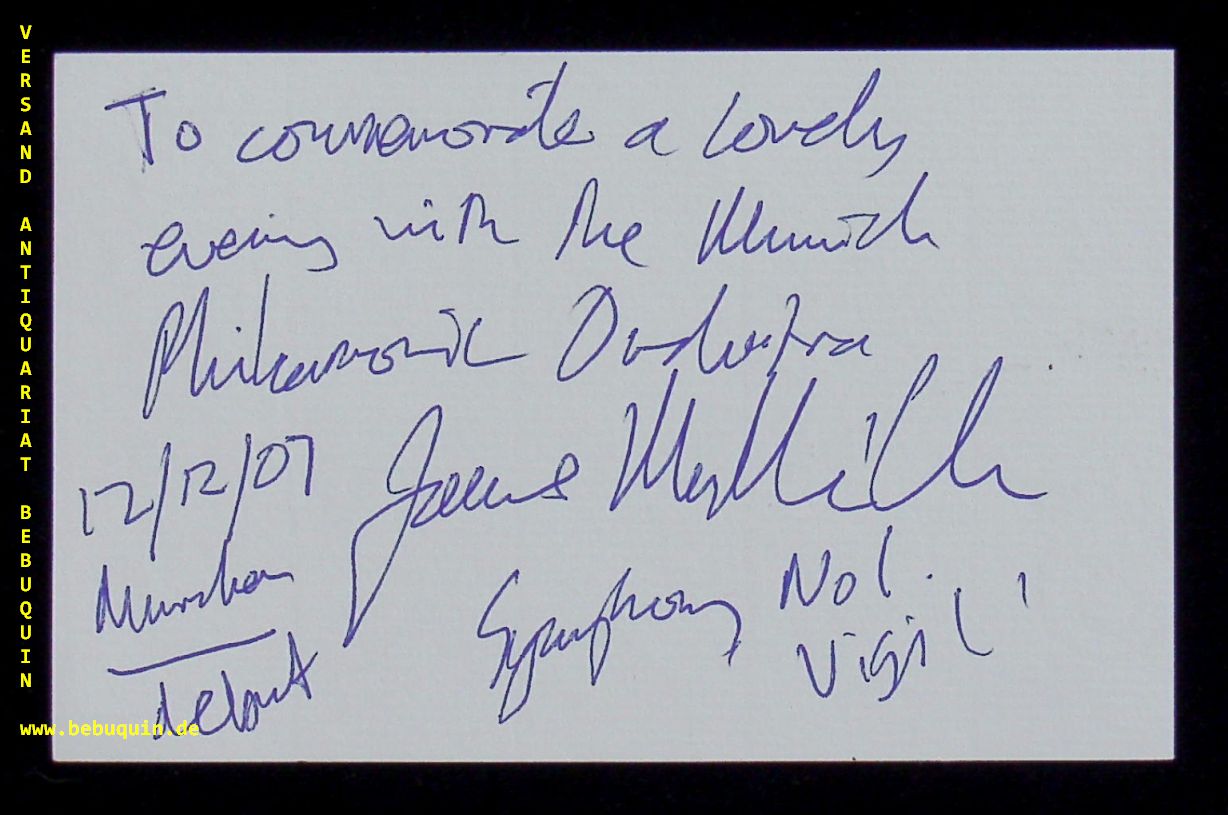 VERSAND ANTIQUARIAT BEBUQUIN
www.bebuquin.de
To commemorate a lovely
evening with the Munich
Philharmonic Orchestra
12/12/07 James MacMillan
München
debut
Symphony No 1.
Vigil'